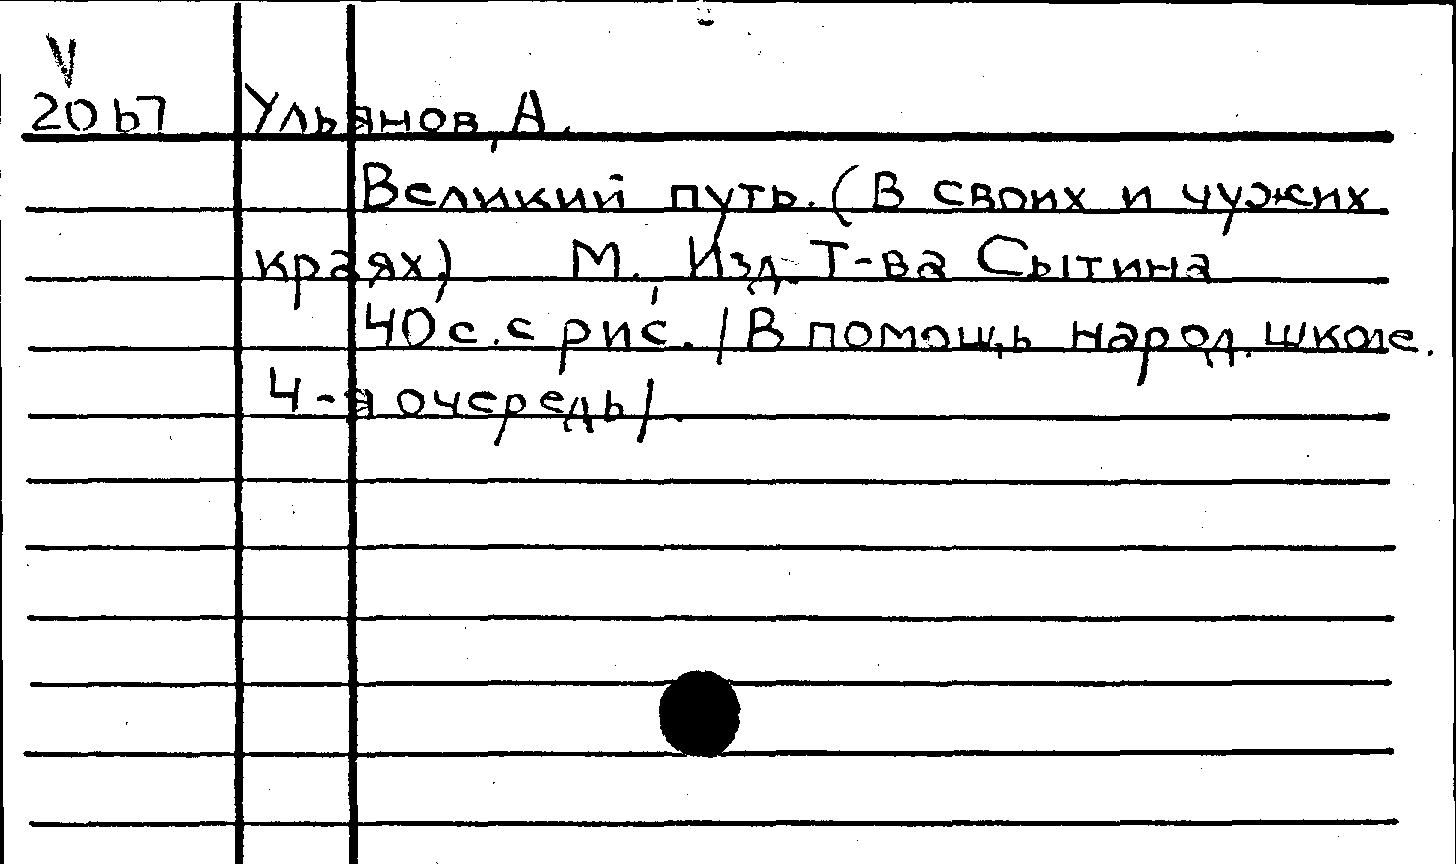 V
20b7 Ульянов, А.
Великий путь. (В своих и чужих
краях) М. Изд. Т-ва Сытина
40 с. с рис. /В помощь народ. школе.
4-я очередь/.